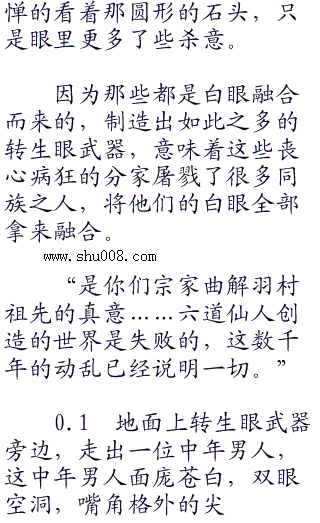 惮的看着那圆形的石头，只
是眼里更多了些杀意。
因为那些都是白眼融合
而来的，制造出如此之多的
转生眼武器，意味着这些丧
心病狂的分家屠戮了很多同
族之人，将他们的白眼全部
拿来融合。
www.shu008.com
“是你们宗家曲解羽村
祖先的真意……六道仙人创
造的世界是失败的，这数千
年的动乱已经说明一切。”
0.1　地面上转生眼武器
旁边，走出一位中年男人，
这中年男人面庞苍白，双眼
空洞，嘴角格外的尖